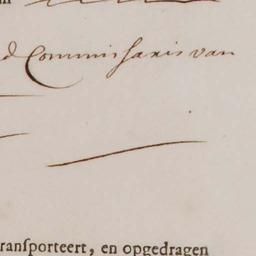 d Commissaris van
transporteert, en opgedragen